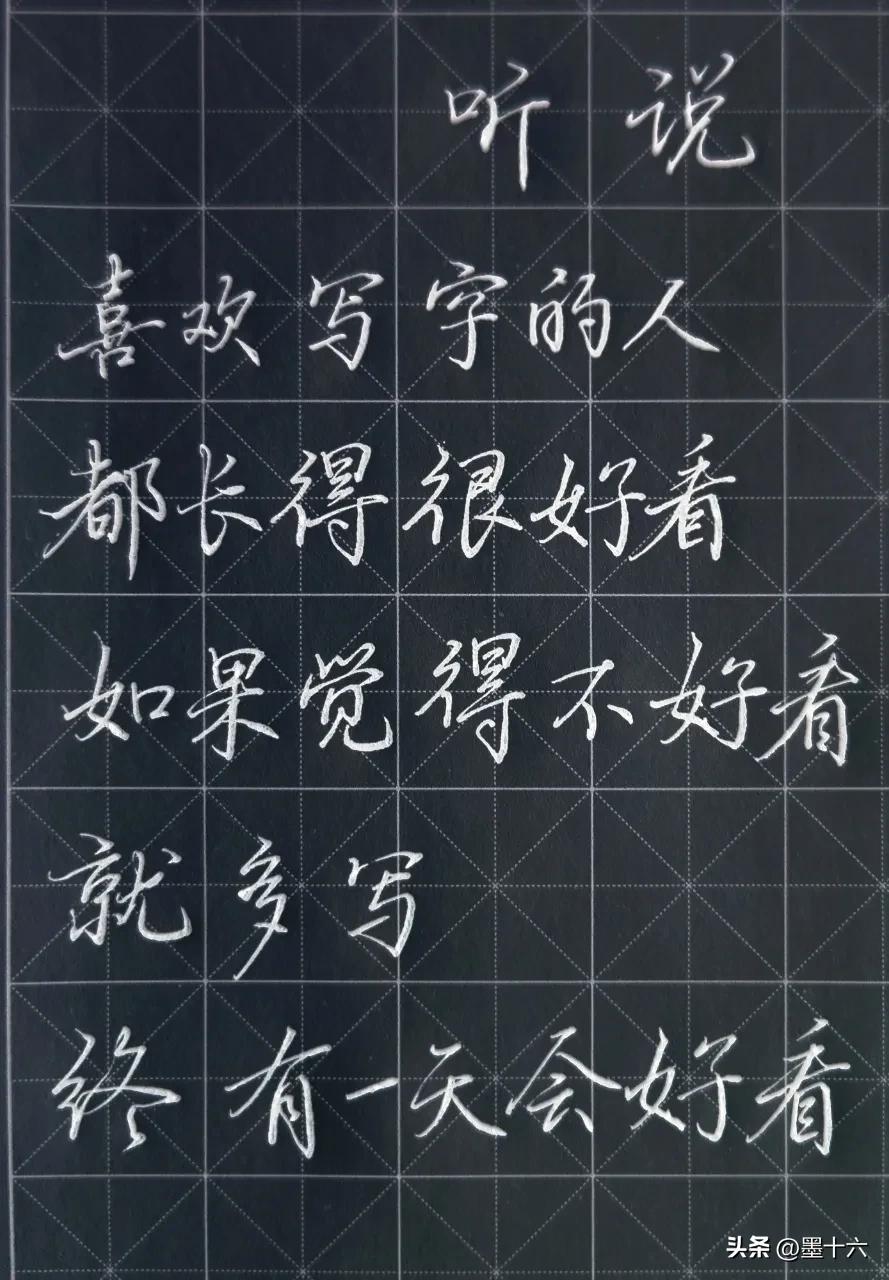 听说
喜欢写字的人
都长得很好看
如果觉得不好看
就多写
终有一天会好看
头条 @墨十六